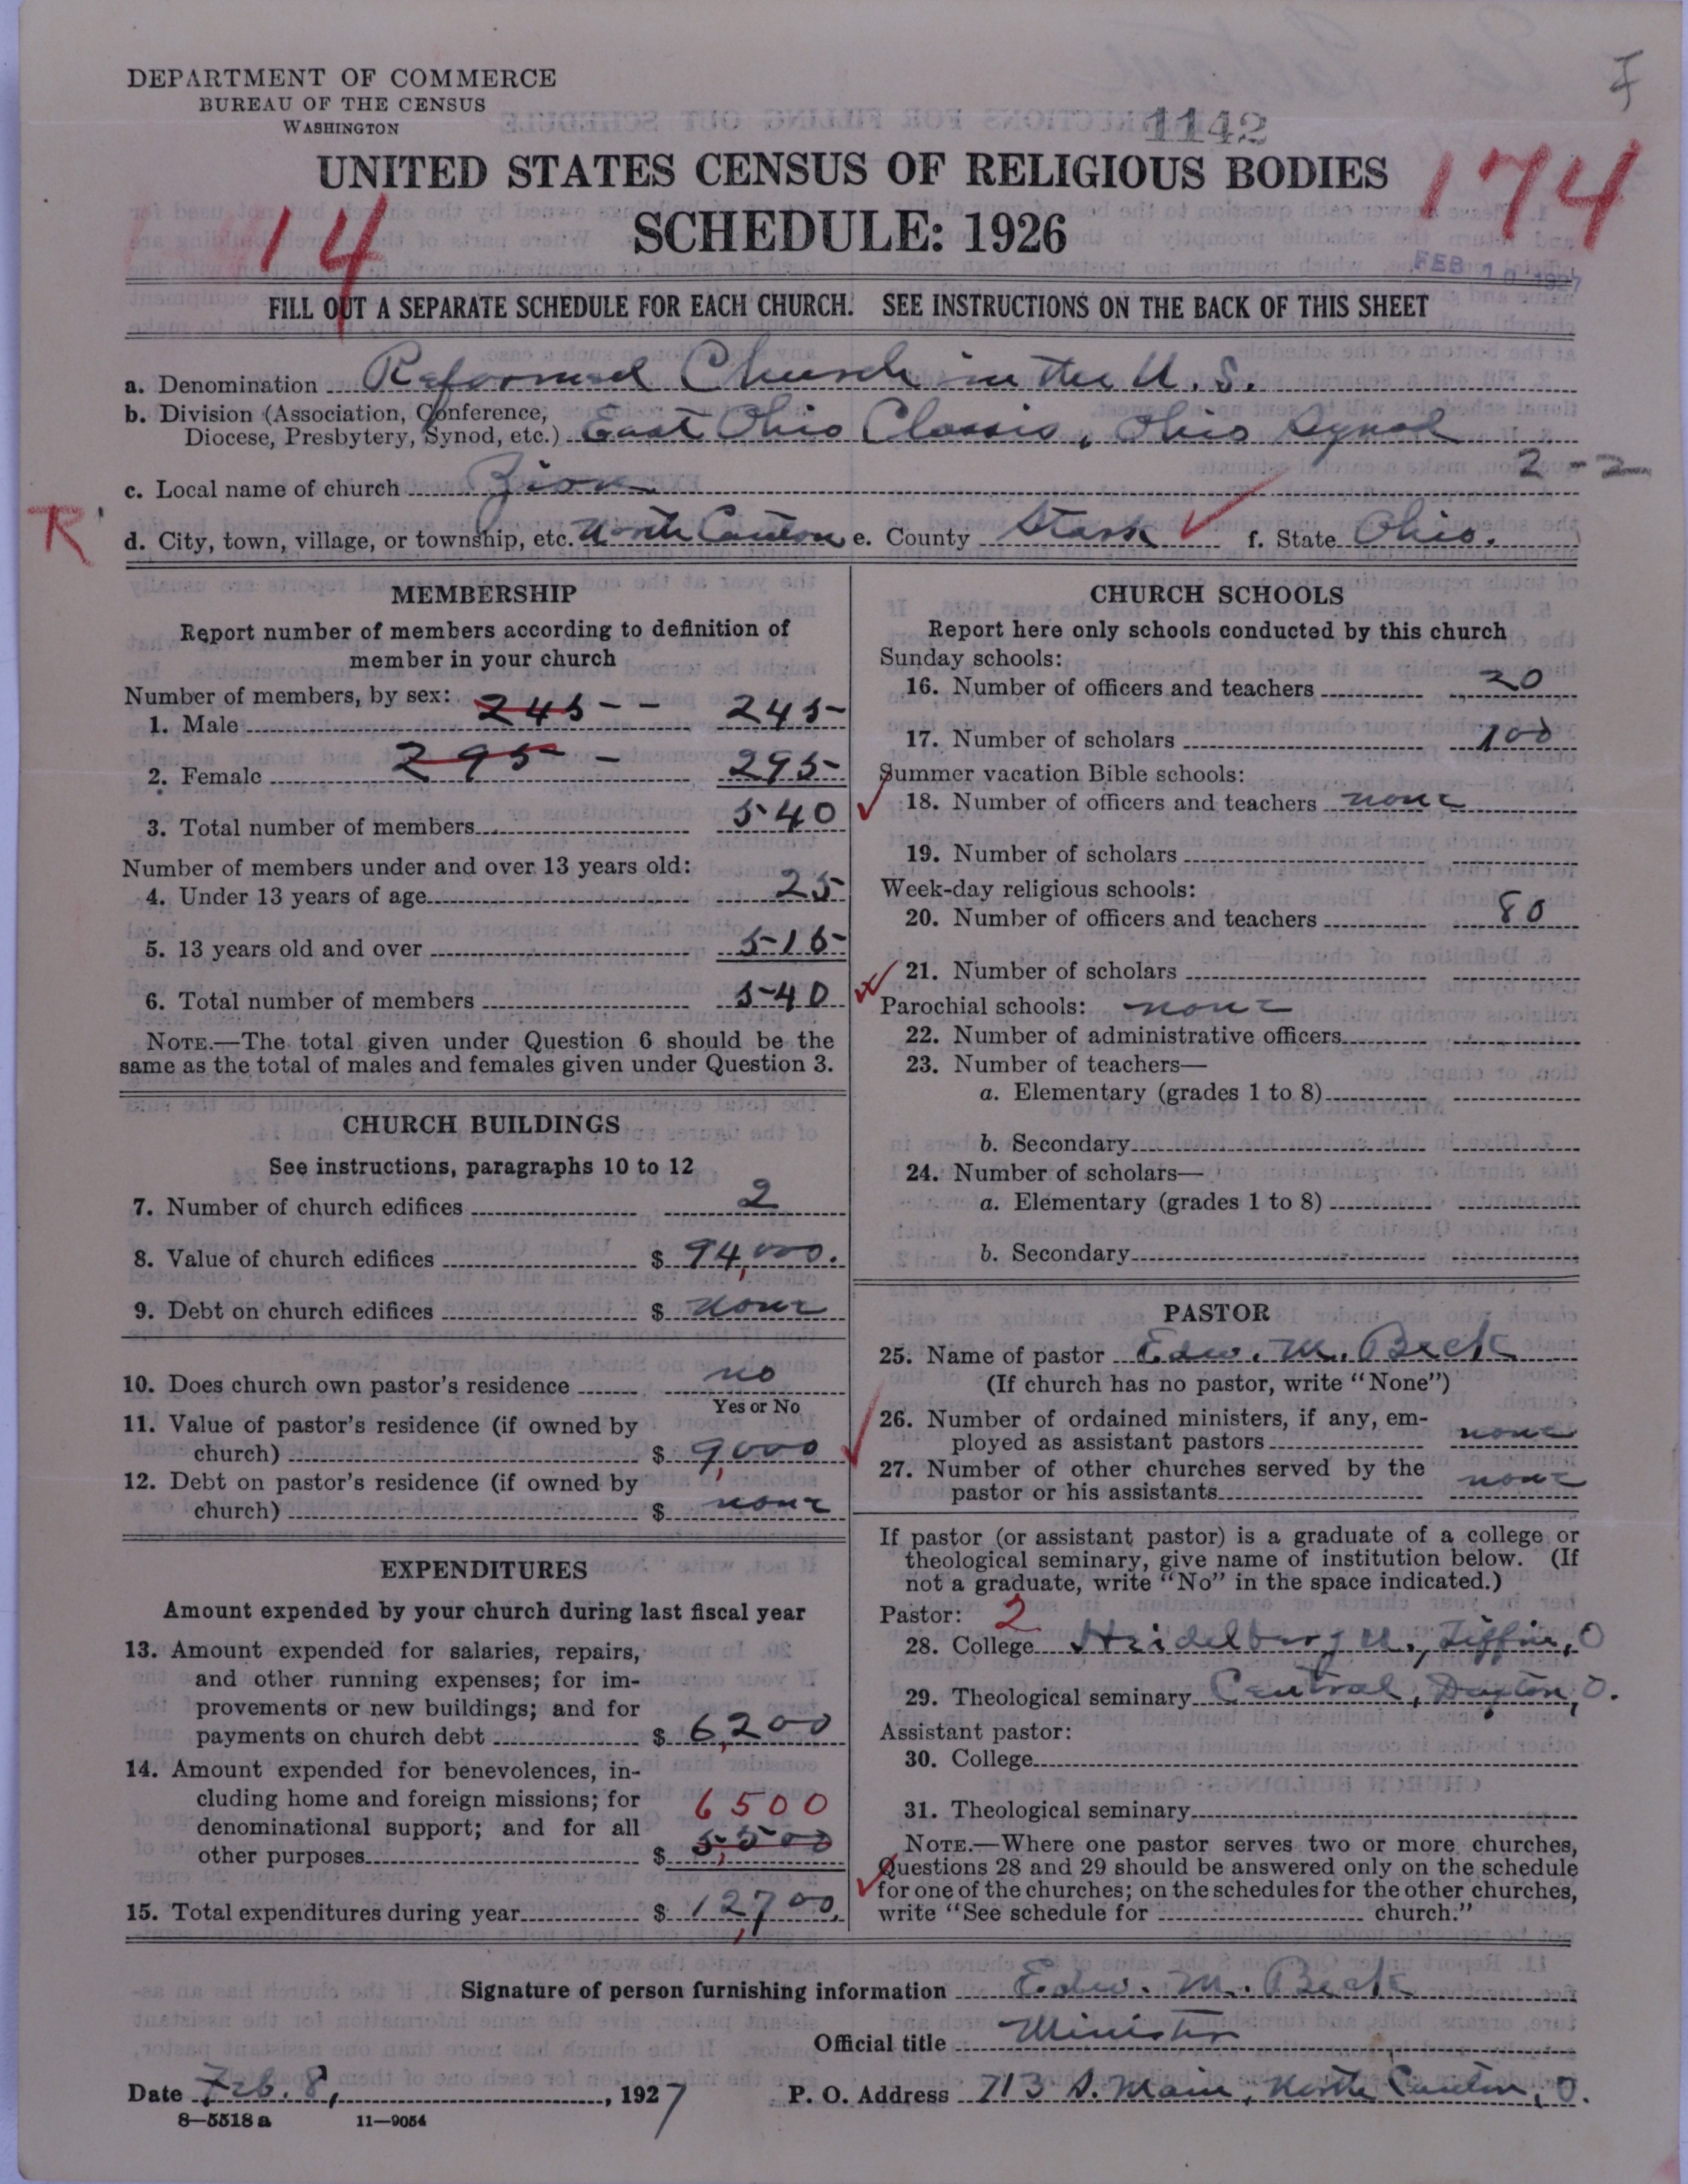 DEPARTMENT OF COMMERCE
BUREAU OF THE CENSUS
WASHINGTON
1142
UNITED STATES CENSUS OF RELIGIOUS BODIES
SCHEDULE: 1926
14
174
FEB 10 1927
FILL OUT A SEPARATE SCHEDULE FOR EACH CHURCH. SEE INSTRUCTIONS ON THE BACK OF THIS SHEET
a. Denomination Reformed Church in the U. S.
b. Division (Association, Conference,
Diocese, Presbytery, Synod, etc.) East Ohio Classis, Ohio Synod
2-2
c. Local name of church Zion
R
d. City, town, village, or township, etc. North Canton e. County Stark f. State Ohio.
MEMBERSHIP
Report number of members according to definition of
member in your church
Number of members, by sex:
1. Male 245 -- 245
2. Female 295 - 295
3. Total number of members 540
Number of members under and over 13 years old:
4. Under 13 years of age 25
5. 13 years old and over 515
6. Total number of members 540
NOTE.—The total given under Question 6 should be the
same as the total of males and females given under Question 3.
CHURCH BUILDINGS
See instructions, paragraphs 10 to 12
7. Number of church edifices 2
8. Value of church edifices $ 94,000.
9. Debt on church edifices $ none
10. Does church own pastor's residence no
Yes or No
11. Value of pastor's residence (if owned by
church) $ 9,000
12. Debt on pastor's residence (if owned by
church) $ none
EXPENDITURES
Amount expended by your church during last fiscal year
13. Amount expended for salaries, repairs,
and other running expenses; for im-
provements or new buildings; and for
payments on church debt $ 6,200
14. Amount expended for benevolences, in-
cluding home and foreign missions; for 6500
denominational support; and for all
other purposes $ 5,500
15. Total expenditures during year $ 12,700.
CHURCH SCHOOLS
Report here only schools conducted by this church
Sunday schools:
16. Number of officers and teachers 20
17. Number of scholars 100
Summer vacation Bible schools:
18. Number of officers and teachers none
19. Number of scholars
Week-day religious schools:
20. Number of officers and teachers 80
21. Number of scholars
Parochial schools: none
22. Number of administrative officers
23. Number of teachers—
a. Elementary (grades 1 to 8)
b. Secondary
24. Number of scholars—
a. Elementary (grades 1 to 8)
b. Secondary
PASTOR
25. Name of pastor Edw. M. Beck
(If church has no pastor, write "None")
26. Number of ordained ministers, if any, em-
ployed as assistant pastors none
27. Number of other churches served by the
pastor or his assistants none
If pastor (or assistant pastor) is a graduate of a college or
theological seminary, give name of institution below. (If
not a graduate, write "No" in the space indicated.)
Pastor: 2
28. College Heidelberg U., Tiffin, O
29. Theological seminary Central, Dayton, O.
Assistant pastor:
30. College
31. Theological seminary
NOTE.—Where one pastor serves two or more churches,
Questions 28 and 29 should be answered only on the schedule
for one of the churches; on the schedules for the other churches,
write "See schedule for church."
Signature of person furnishing information Edw. M. Beck
Official title Minister
Date Feb. 8, 1927 P. O. Address 713 S. Main, North Canton, O.
8—5518 a 11—9054